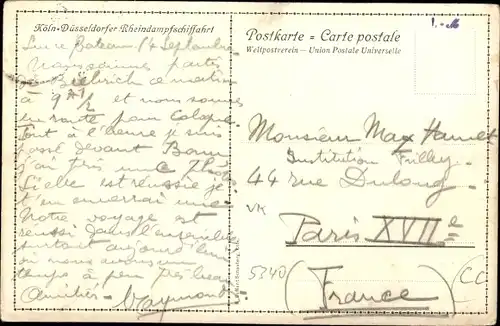 Köln-Düsseldorfer Rheindampfschiffahrt
Sur le Bateau 14 Septembre
Nous sommes partis
de Biebrich ce matin
à 9h 1/2 et nous sommes
en route pour Cologne.
Tout à l'heure je suis
passé devant Bonn
j'ai pris une Photo
Si elle est réussie je
t'en enverrai une.
Notre voyage est
réussi dans l'ensemble
surtout aujourd'hui
où nous avons un
temps à peu près beau
Amitiés. Raymond
Postkarte = Carte postale
Weltpostverein — Union Postale Universelle
Monsieur Max
Institution
44 rue Dulong
VK
Paris XVIIe
5340
(France)
CC